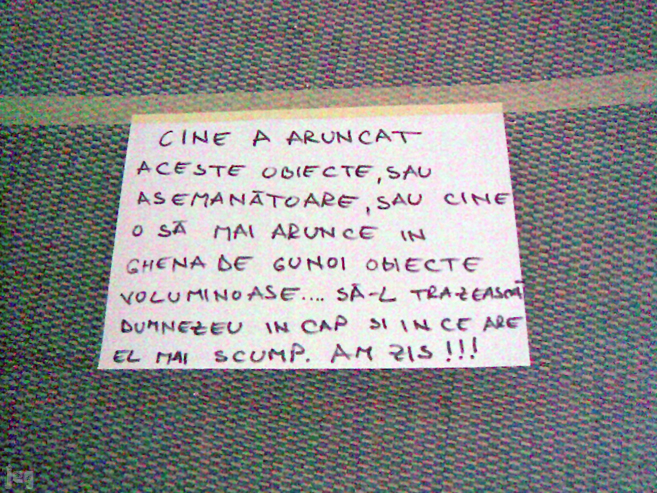 CINE A ARUNCAT
ACESTE OBIECTE, SAU
ASEMANĂTOARE, SAU CINE
O SĂ MAI ARUNCE IN
GHENA DE GUNOI OBIECTE
VOLUMINOASE.... SĂ-L TRAZEASCĂ
DUMNEZEU IN CAP SI IN CE ARE
EL MAI SCUMP. AM ZIS!!!